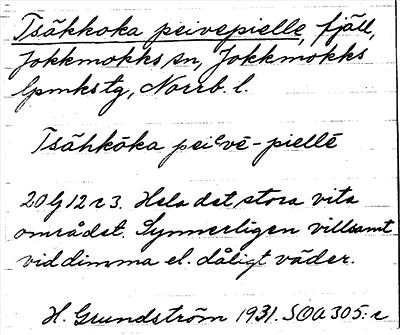 Tsåkkoka peivepielle, fjäll,
Jokkmokks sn, Jokkmokks
lpmkstg, Norrb. l.
Tsåhkōka peiᵋvē-piellē
20 G 12 r 3. Hela det stora vita
området. Synnerligen villsamt
vid dimma el. dåligt väder.
H. Grundström 1931. SOA 305: